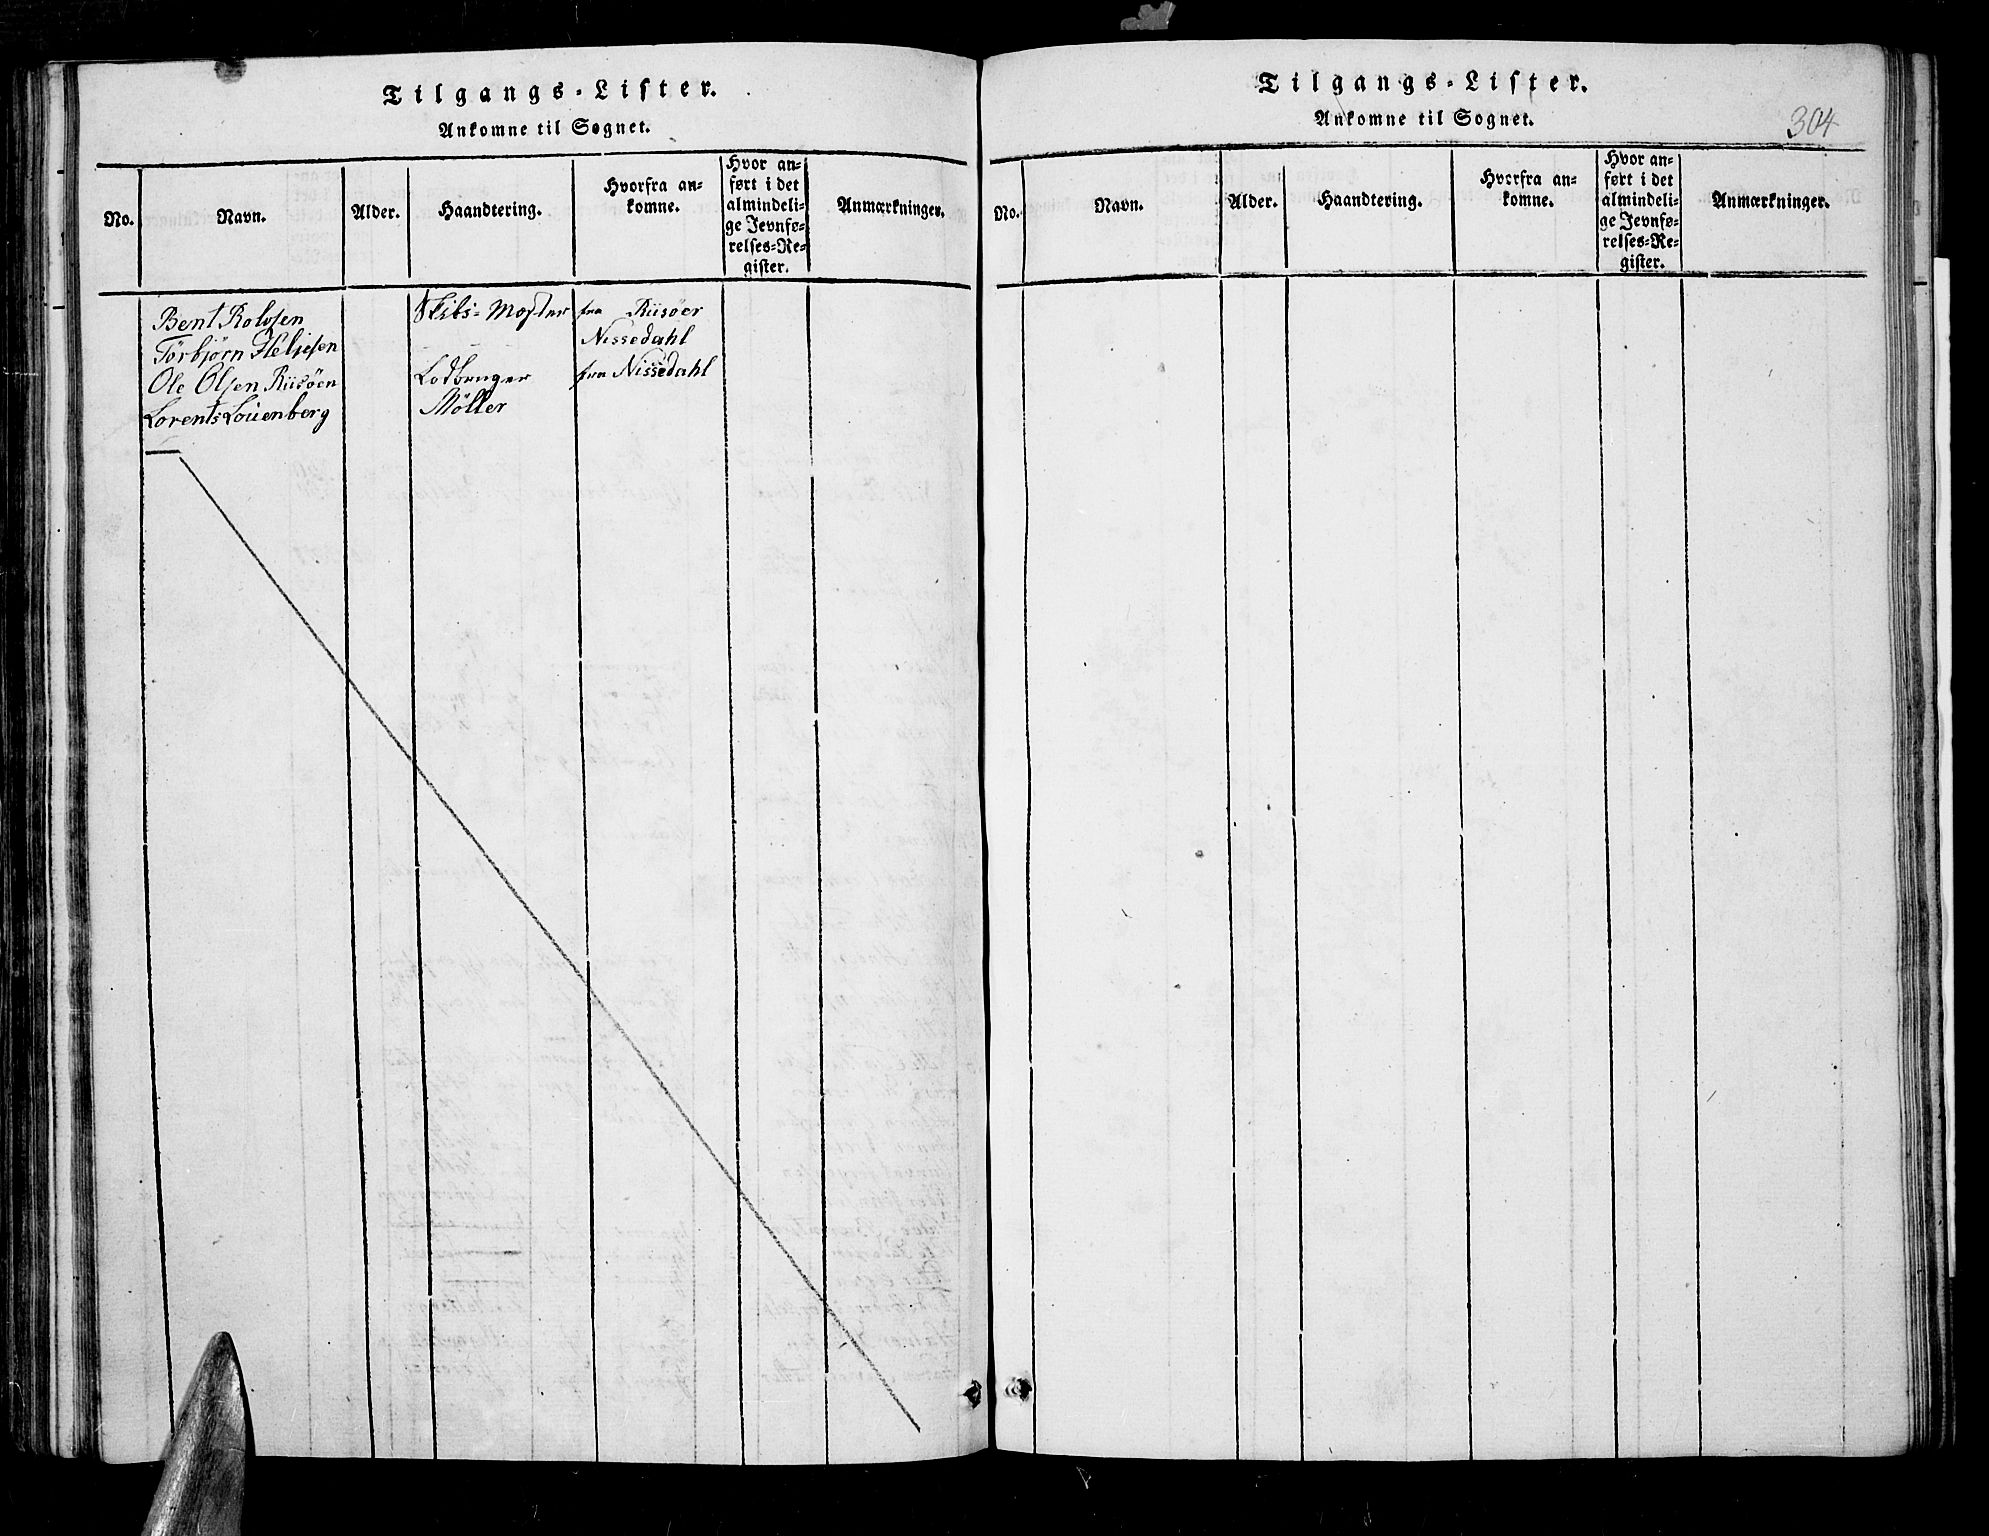 Tilgangs-Lister.
Ankomne til Sognet.
No.
Navn.
Alder.
Haandtering.
Hvorfra an-
komne.
Hvor an-
ført i det
almindeli-
ge Jevnfø-
relses-Re-
gister.
Anmærkninger.
Bent Rolvsen Skibs-Mester fra Riisøer
Törbjörn Heljesen Nissedahl
Ole Olsen Riisöen fra Nissedahl
Lorents Möller
Tilgangs-Lister.
Ankomne til Sognet.
304
No.
Navn.
Alder.
Haandtering.
Hvorfra an-
komne.
Hvor an-
ført i det
almindeli-
ge Jevnfø-
relses-Re-
gister.
Anmærkninger.